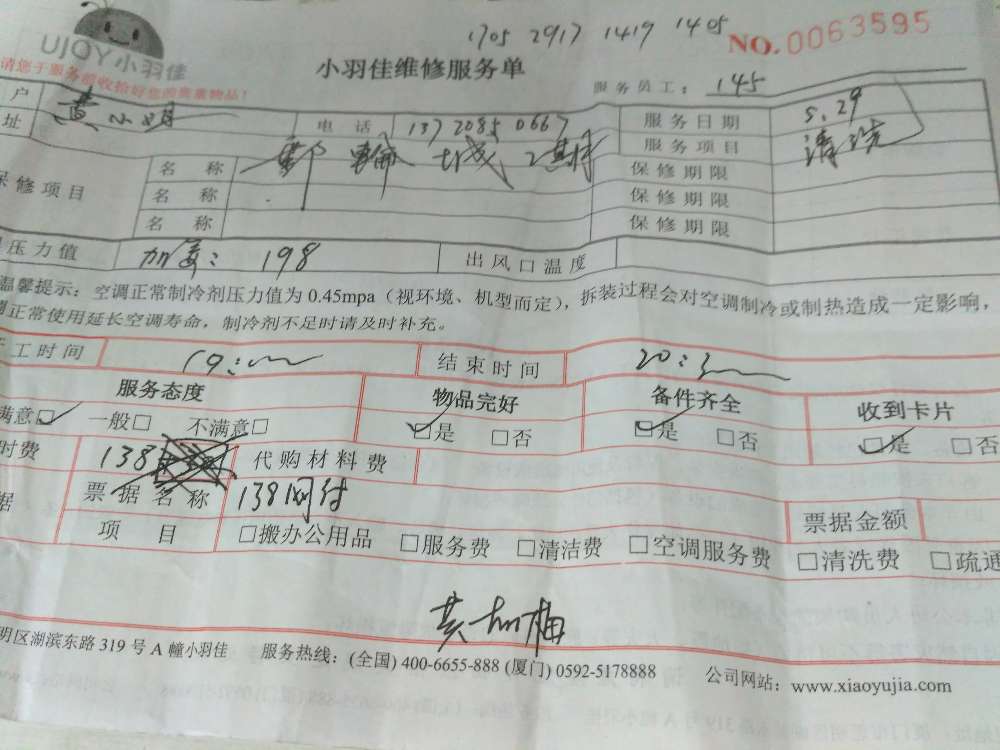 1705 2917 1419 1405
NO.0063595
UJOY小羽佳
请您于服务前收拾好您的贵重物品!
小羽佳维修服务单
服务员工: 145
户 黄小明 电话 137 2085 0667 服务日期 5.29
址 城二期 服务项目 清洗
保修项目 名称 保修期限
名称 保修期限
名称 保修期限
压力值 198 出风口温度
温馨提示: 空调正常制冷剂压力值为0.45mpa(视环境、机型而定), 拆装过程会对空调制冷或制热造成一定影响,
正常使用延长空调寿命, 制冷剂不足时请及时补充。
工时间 19: 结束时间 20:
服务态度 物品完好 备件齐全 收到卡片
满意☑ 一般□ 不满意□ ☑是 □否 ☑是 □否 ☑是 □否
时费 138 代购材料费
据 票据名称 138网付 票据金额
项目 □搬办公用品 □服务费 □清洁费 □空调服务费 □清洗费 □疏通
明区湖滨东路319号A幢小羽佳 服务热线: (全国) 400-6655-888 (厦门) 0592-5178888 公司网站: www.xiaoyujia.com